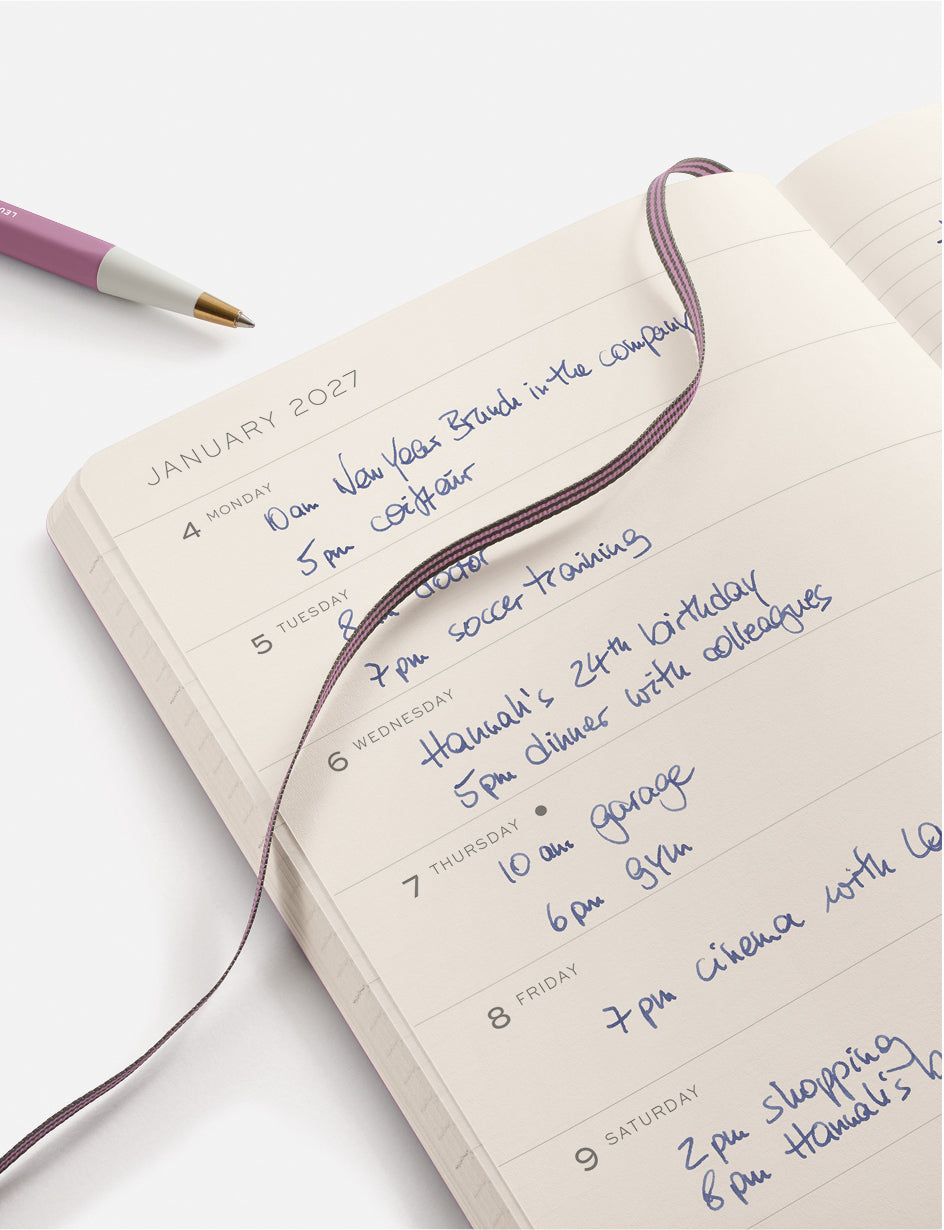 JANUARY 2027
4 MONDAY
10 am New Years Brunch in the company
5 pm coiffeur
5 TUESDAY
8 doctor
7 pm soccer training
6 WEDNESDAY
Hannah's 24th birthday
5pm dinner with colleagues
7 THURSDAY
10 am garage
6 pm gym
8 FRIDAY
7 pm cinema with
9 SATURDAY
2 pm shopping
8 pm Hannah's
LEU